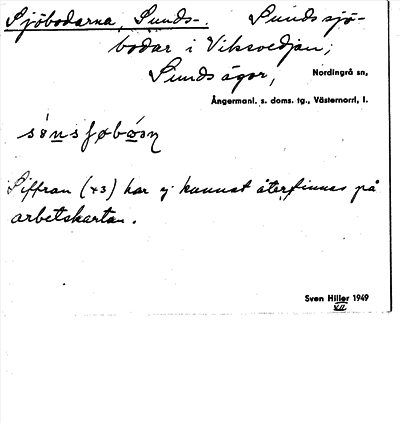 Sjöbodarna, Sunds-. Sunds sjö-
bodar i Viksvedjan;
Sunds ägor, Nordingrå sn,
Ångermanl. s. doms. tg., Västernorrl, l.
Siffran (43) har ej kunnat återfinnas på
arbetskartan.
Sven Hiller 1949
XII